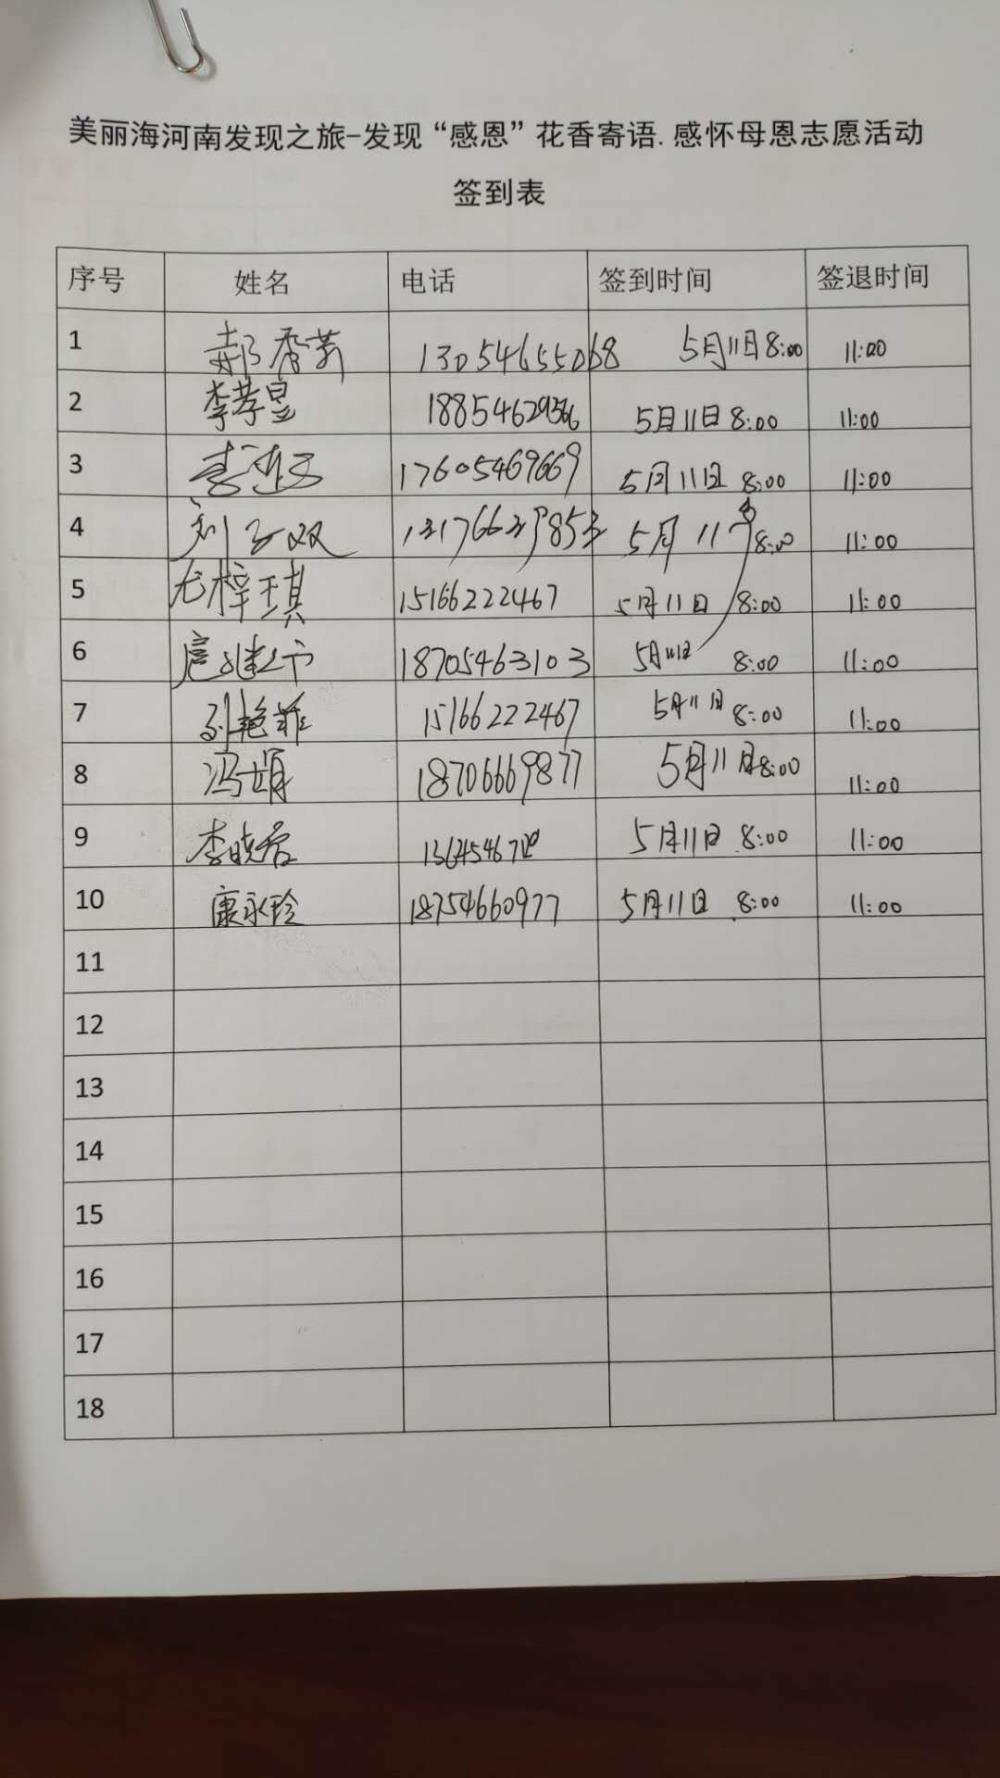 美丽海河南发现之旅-发现“感恩”花香寄语.感怀母恩志愿活动
签到表
序号 姓名 电话 签到时间 签退时间
1 郝秀芳 13054655068 5月11日8:00 11:00
2 李孝皇 18854629366 5月11日8:00 11:00
3 李 17605469669 5月11日 8:00 11:00
4 刘子双 5月11日 8:00 11:00
5 尤梓琪 15166222467 5月11日 8:00 11:00
6 18705463103 5月11日 8:00 11:00
7 刘艳菲 15166222467 5月11日 8:00 11:00
8 冯娟 18706669877 5月11日8:00 11:00
9 李晓君 5月11日 8:00 11:00
10 康永玲 18754660977 5月11日 8:00 11:00
11
12
13
14
15
16
17
18